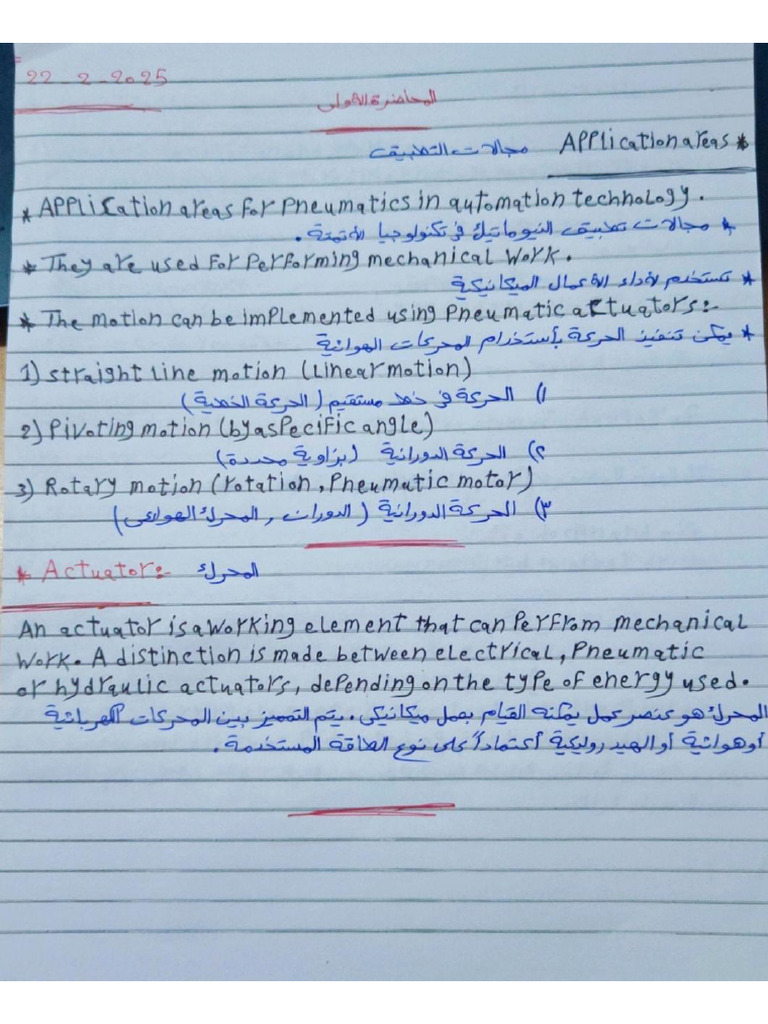 22-2-2025
المحاضرة الأولى
* Application areas مجالات التطبيق
* Application areas for pneumatics in automation technology.
* مجالات تطبيق النيوماتيك في تكنولوجيا الأتمتة.
* They are used for performing mechanical work.
* تستخدم لأداء الأعمال الميكانيكية
* The motion can be implemented using pneumatic actuators:-
* يمكن تنفيذ الحركة بأستخدام المحركات الهوائية
1) straight line motion (linear motion)
١) الحركة في خط مستقيم (الحركة الخطية)
2) Pivoting motion (by a specific angle)
٢) الحركة الدورانية (بزاوية محددة)
3) Rotary motion (rotation, Pneumatic motor)
٣) الحركة الدورانية (الدوران, المحرك الهوائي)
* Actuator:- المحرك
An actuator is a working element that can perfrom mechanical
work. A distinction is made between electrical, Pneumatic
or hydraulic actuators, depending on the type of energy used.
المحرك هو عنصر عمل يمكنه القيام بعمل ميكانيكي. يتم التمييز بين المحركات الكهربائية
أو هوائية أو الهيدروليكية أعتماداً على نوع الطاقة المستخدمة.